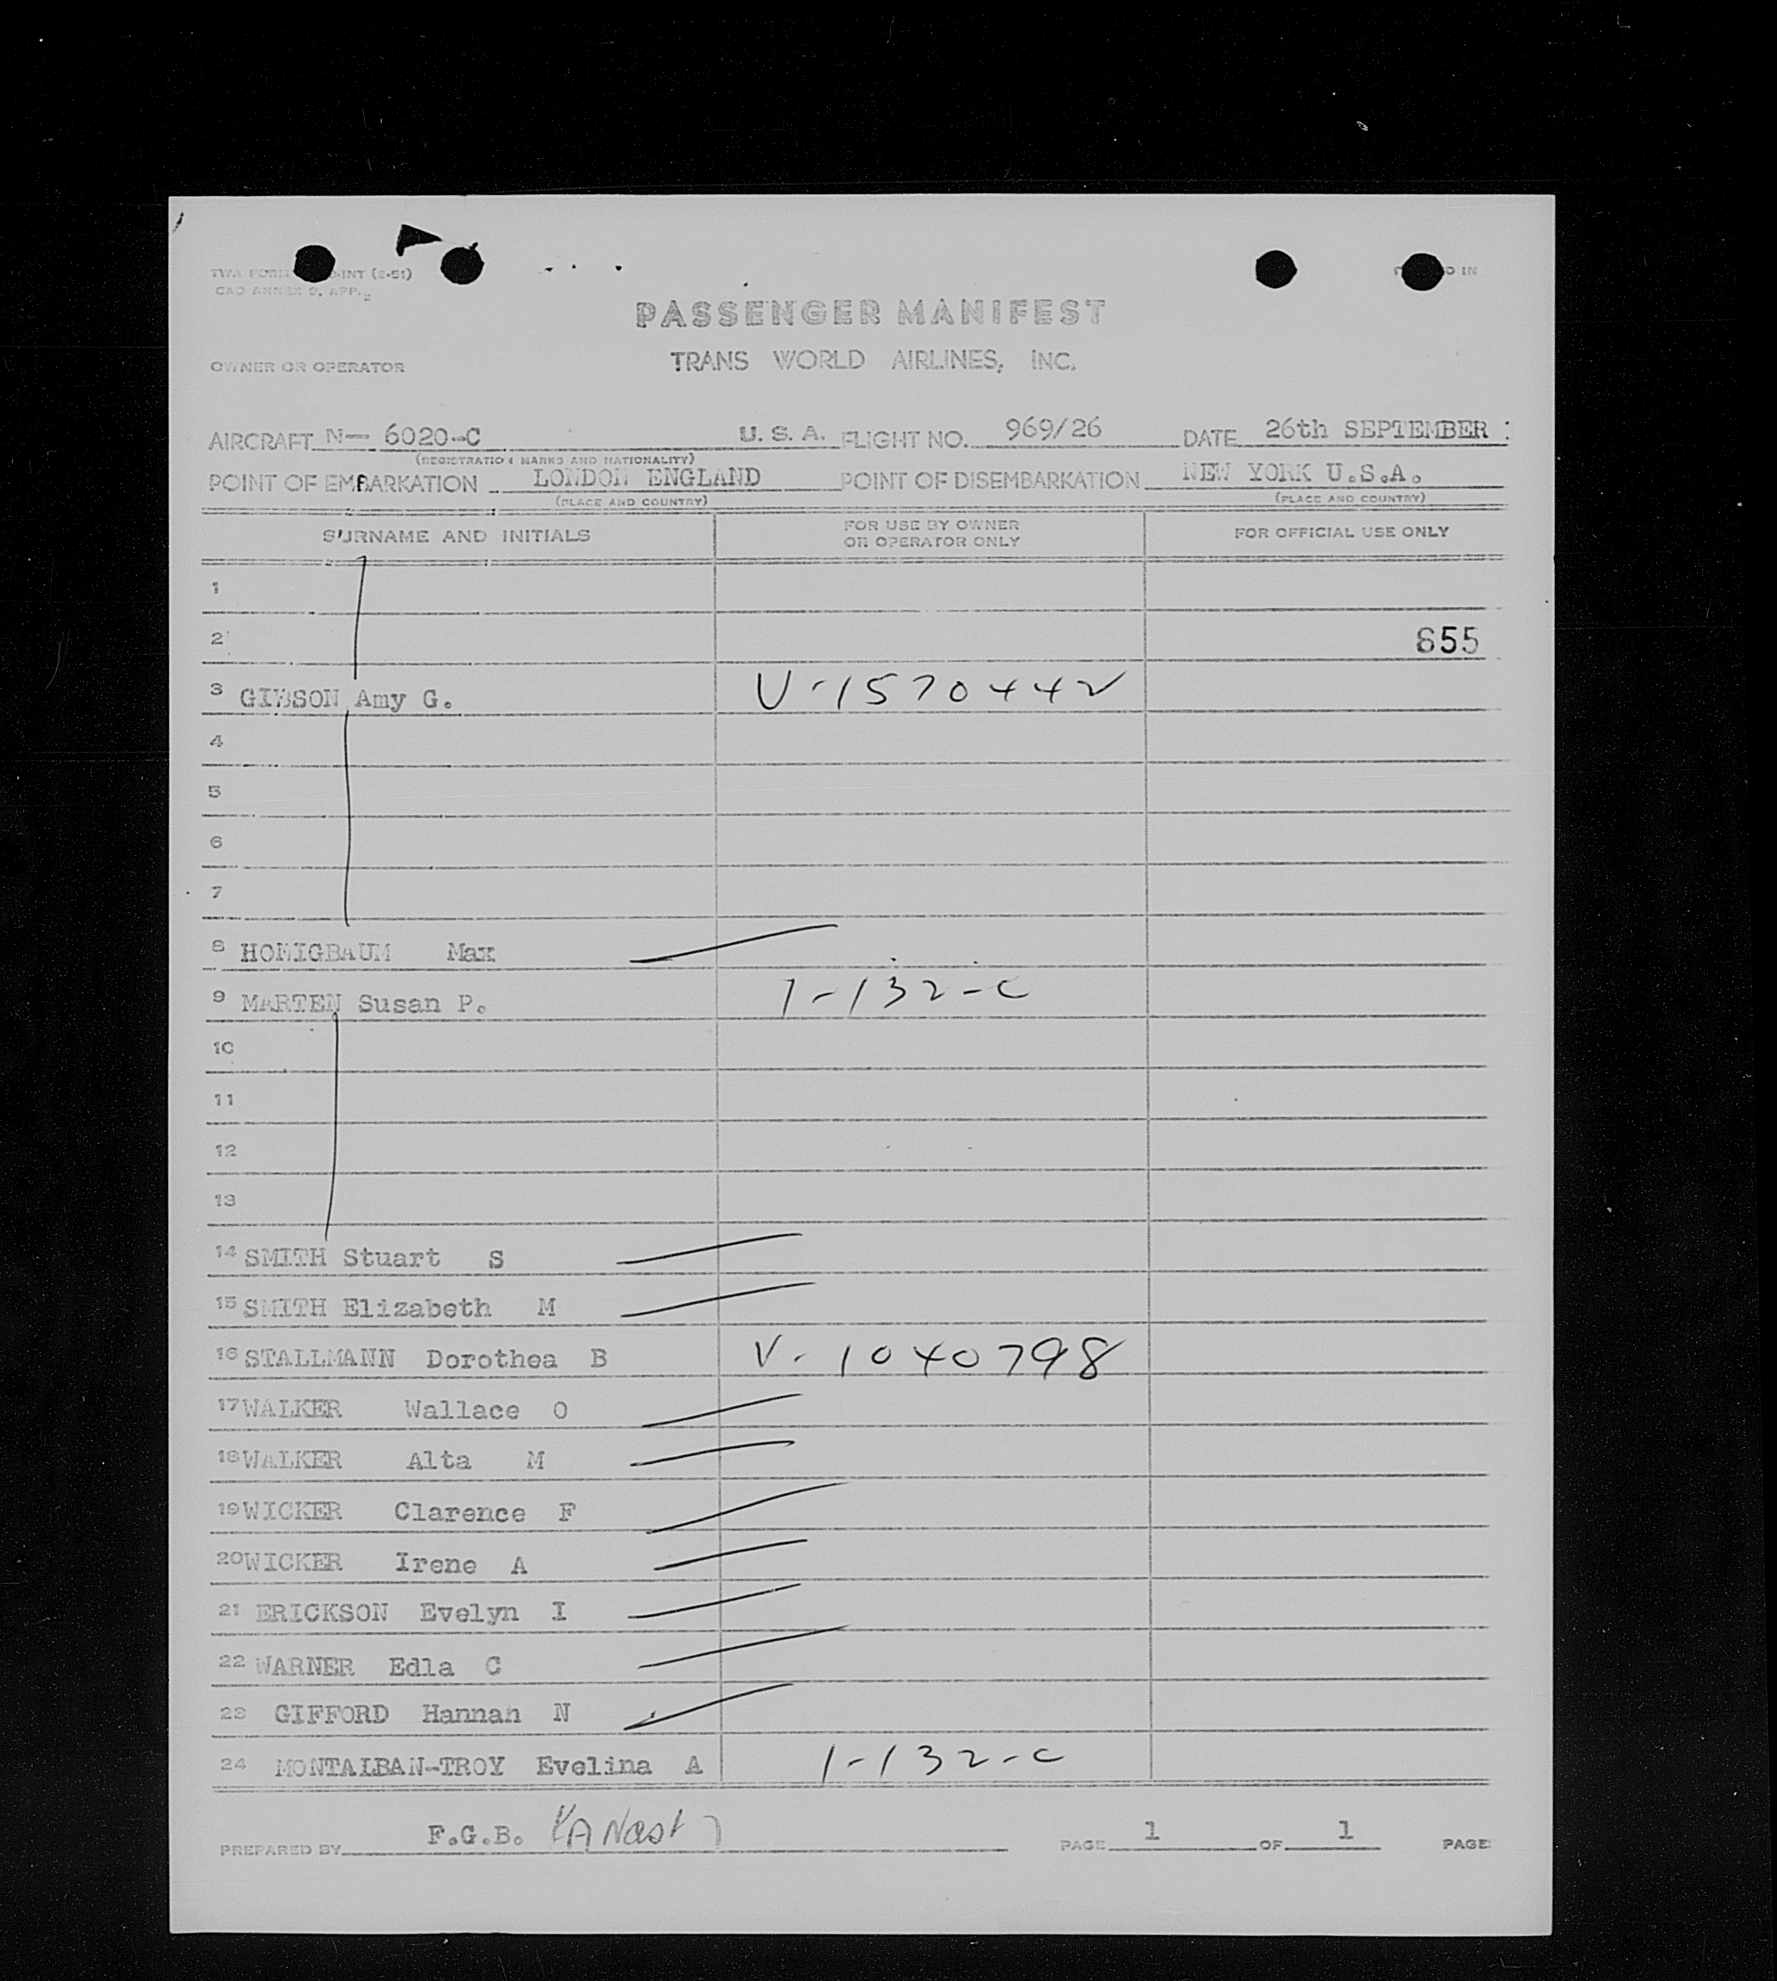 TWA FORM INT (2-51)
PRINTED IN
ICAO ANNEX 9, APP. 2
PASSENGER MANIFEST
OWNER OR OPERATOR TRANS WORLD AIRLINES, INC.
AIRCRAFT N— 6020-C U.S.A. FLIGHT NO. 969/26 DATE 26th SEPTEMBER
(REGISTRATION MARKS AND NATIONALITY)
POINT OF EMBARKATION LONDON ENGLAND POINT OF DISEMBARKATION NEW YORK U.S.A.
(PLACE AND COUNTRY) (PLACE AND COUNTRY)
SURNAME AND INITIALS FOR USE BY OWNER OR OPERATOR ONLY FOR OFFICIAL USE ONLY
1
2 855
3 GIBSON Amy G. V-1570442
4
5
6
7
8 HONIGBAUM Max
9 MARTEN Susan P. 1-132-C
10
11
12
13
14 SMITH Stuart S
15 SMITH Elizabeth M
16 STALLMANN Dorothea B V-1040798
17 WALKER Wallace O
18 WALKER Alta M
19 WICKER Clarence F
20 WICKER Irene A
21 ERICKSON Evelyn I
22 WARNER Edla C
23 GIFFORD Hannah N
24 MONTALBAN-TROY Evelina A 1-132-C
PREPARED BY F.G.B. PAGE 1 OF 1 PAGE